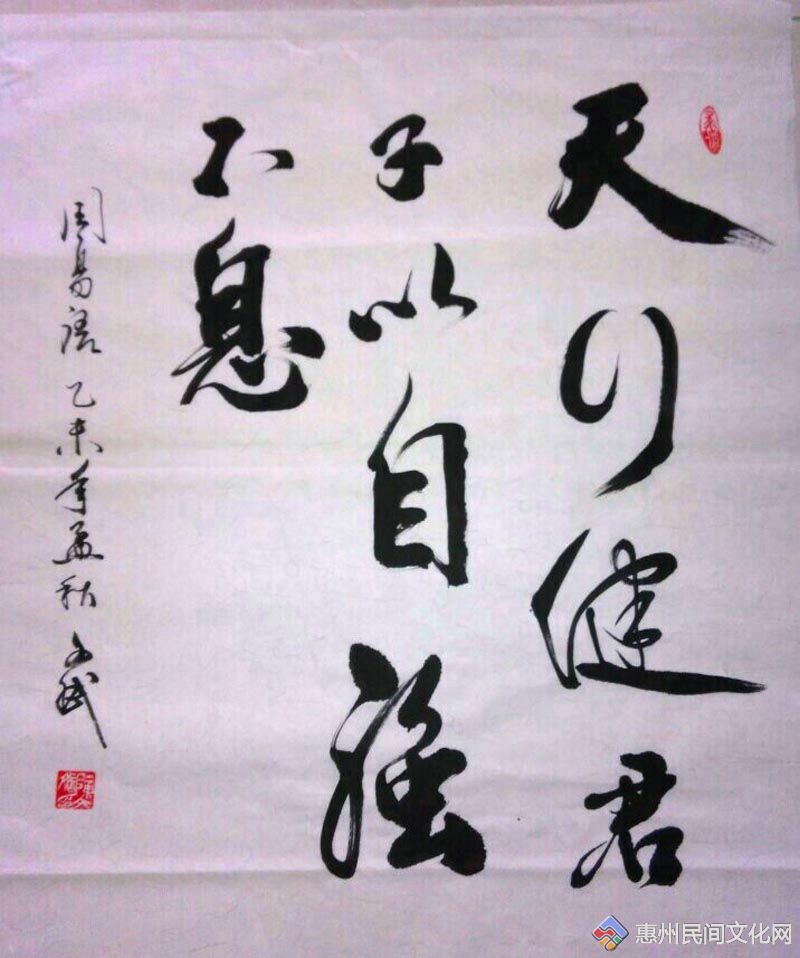 天行健君
子以自强
不息
周易语 乙未年孟秋 文武
惠州民间文化网